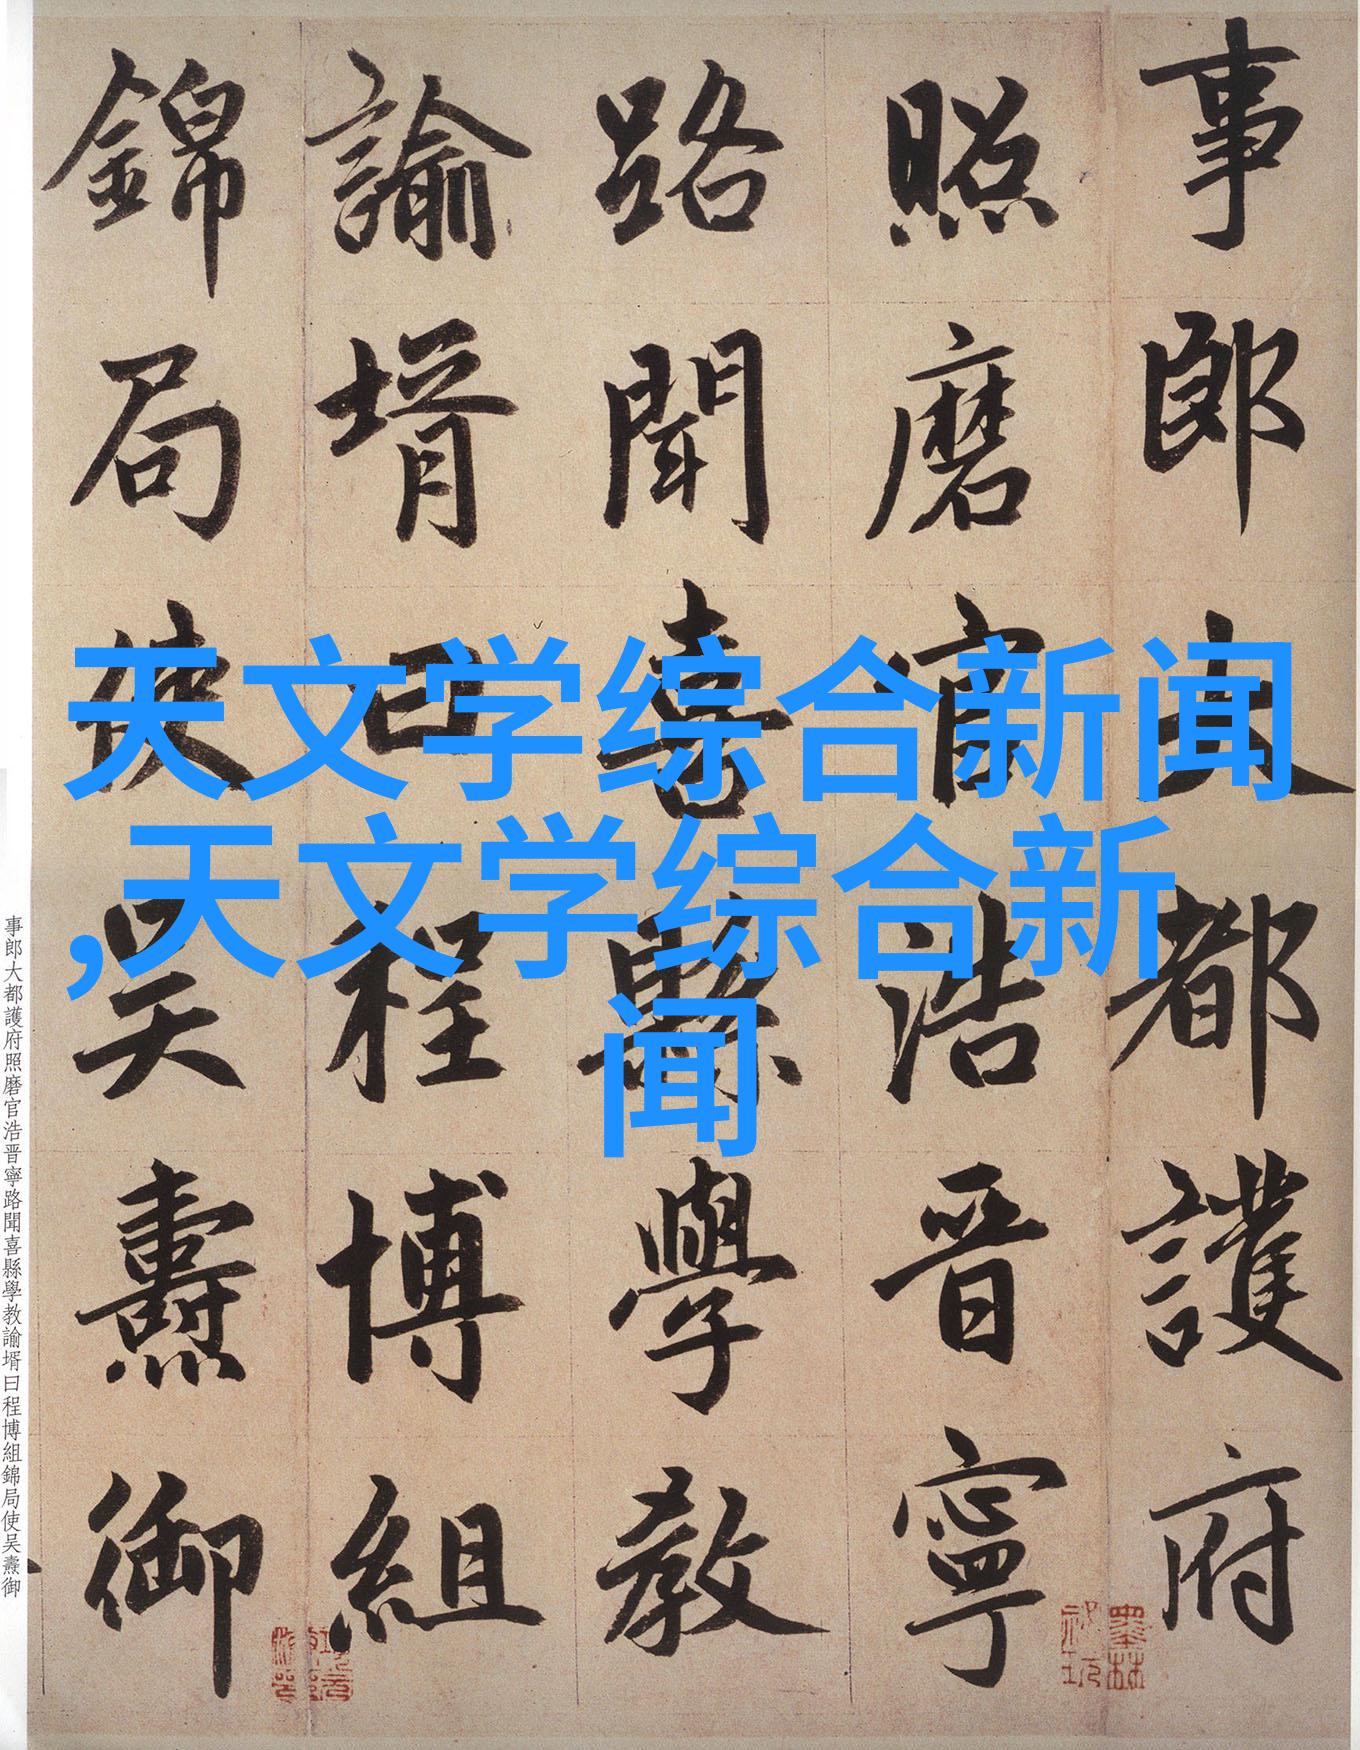 事郎大都護府
照磨官浩晋寧
路聞喜縣學教
諭壻曰程博組
錦局使吴燾御
天文学综合新闻
,天文学综合新
闻
事郎大都護府照磨官浩晋寧路聞喜縣學教諭壻曰程博組錦局使吴燾御